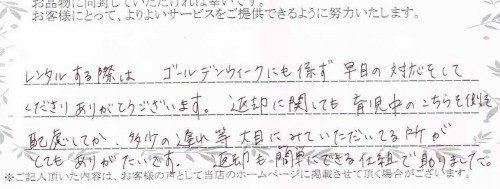 お品物に同封していただければ幸いです。
お客様にとって、よりよいサービスをご提供できるように努力いたします。
レンタルする際は ゴールデンウィークにも係ず 早目の対応をして
くださりありがとうございます。 返却に関しても 育児中のこちら側を
配慮してか、多少の違い等 大目にみていただいてる所が
とてもありがたいです。 返却も簡単にできる仕組で助りました。
※ご記入頂いた内容は、お客様の声として当店のホームページに掲載させて頂く場合がございます。